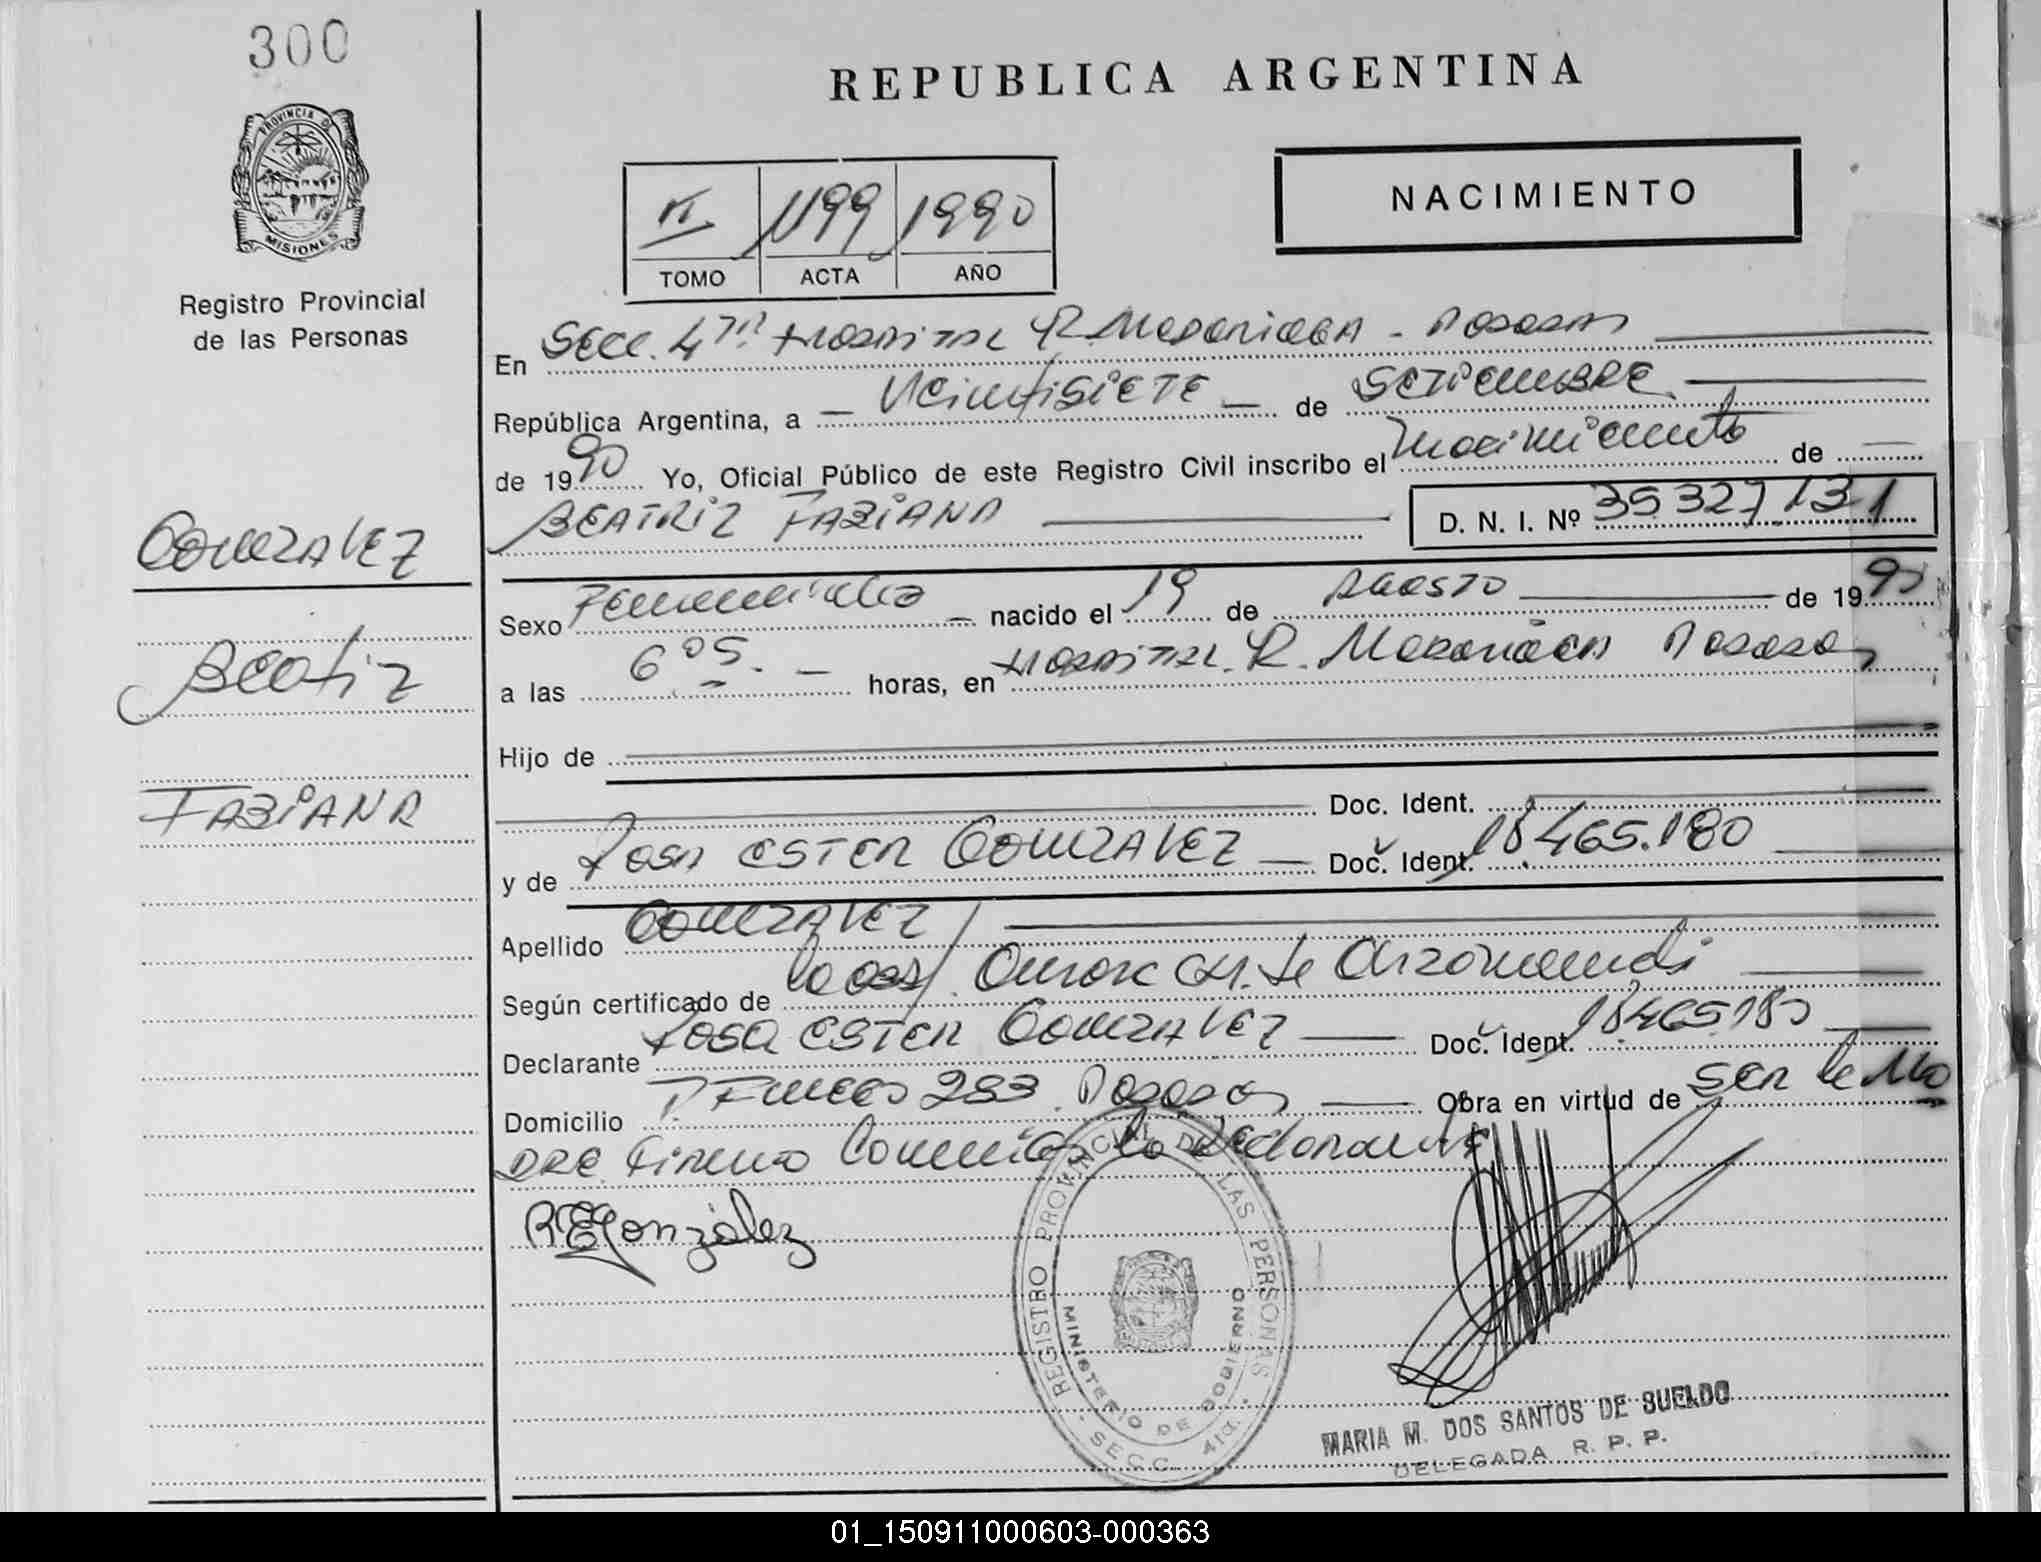 300
REPUBLICA ARGENTINA
PROVINCIA DE
MISIONES
NACIMIENTO
VI 1199 1990
TOMO ACTA AÑO
Registro Provincial
de las Personas
En Secc. 4ta Hospital R. Madariaga - Posadas
República Argentina, a - Veintisiete - de Setiembre
de 1990 Yo, Oficial Público de este Registro Civil inscribo el nacimiento de
BEATRIZ FABIANA D. N. I. Nº 35.327.131
GONZALEZ
Sexo Femenino - nacido el 19 de Agosto de 1990
Beatriz
a las 6 05. - horas, en Hospital R. Madariaga Posadas
Hijo de
FABIANA
Doc. Ident.
y de Rosa ESTER GONZALEZ - Doc. Ident. 18.465.180
Apellido GONZALEZ
Según certificado de la obst. de
Declarante Rosa ESTER GONZALEZ Doc. Ident. 18.465.180
Domicilio 283 Posadas Obra en virtud de ser la ma
DRE Firma Conmigo la declarante
REGonzález
REGISTRO PROVINCIAL DE LAS PERSONAS
MINISTERIO DE GOBIERNO
SECC. 4ta.
MARIA M. DOS SANTOS DE SUELDO
DELEGADA R. P. P.
01_150911000603-000363